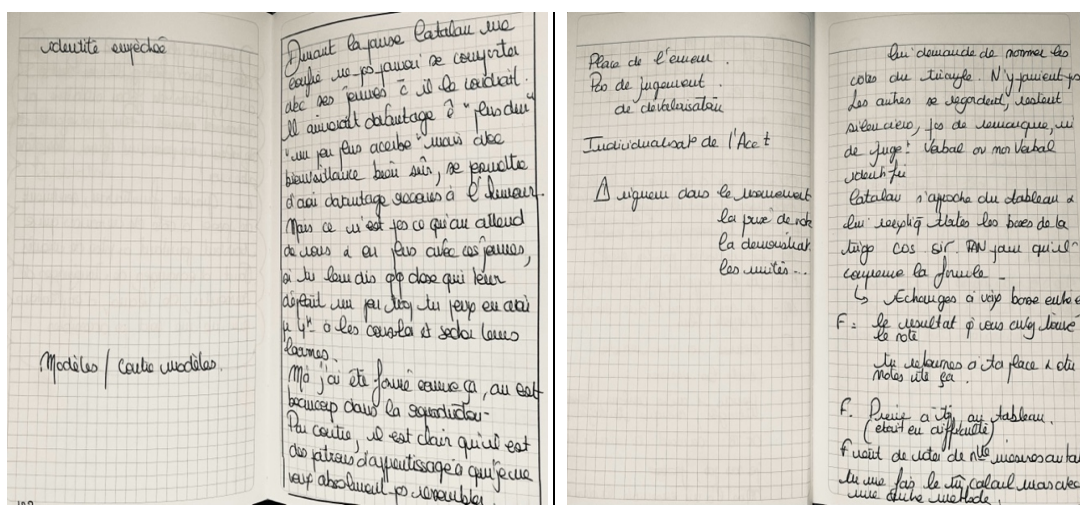 identité empêchée
Modèles / contre modèles.
Durant la pause Catalau me
confie ne pas pouvoir se comporter
avec ses jeunes il le voudrait.
Il aimerait davantage ê "plus dur"
"un peu plus acerbe" mais avec
bienveillance bien sûr, se permettre
d'avoir davantage recours à l'humour.
Mais ce n'est pas ce qu'on attend
de nous & en plus avec ces jeunes,
si tu leur dis qq chose qui leur
déplait un peu trop tu peux en avoir
à les consoler et sécher leurs
larmes.
Moi j'ai été formé comme ça, on est
beaucoup dans la reproduction
Par contre, il est clair qu'il est
des patrons d'apprentissage à qui je ne
veux absolument pas ressembler.
Place de l'erreur.
Pas de jugement.
de dévalorisation
Individualisat° de l'Acct
rigueur dans le raisonnement
la prise de note
la démonstrat
les unités...
lui demande de nommer les
cotés du triangle. N'y parvient ps
Les autres se regardent, restent
silencieux, pas de remarque, ni
de juget verbal ou non verbal
identifié
Catalau s'approche du tableau &
lui réexpliq toutes les bases de la
trigo COS SIN TAN pour qu'il
comprenne la formule -
↳ Echanges à voix basse entre
F : le resultat q vous avez trouvé
le note
tu retournes à ta place & tu
notes vite ça.
F. Preuve à toi au tableau.
(était en difficulté)
de noter de nlles mesures au ta
tu me fais le calcul mais avec
une autre méthode.